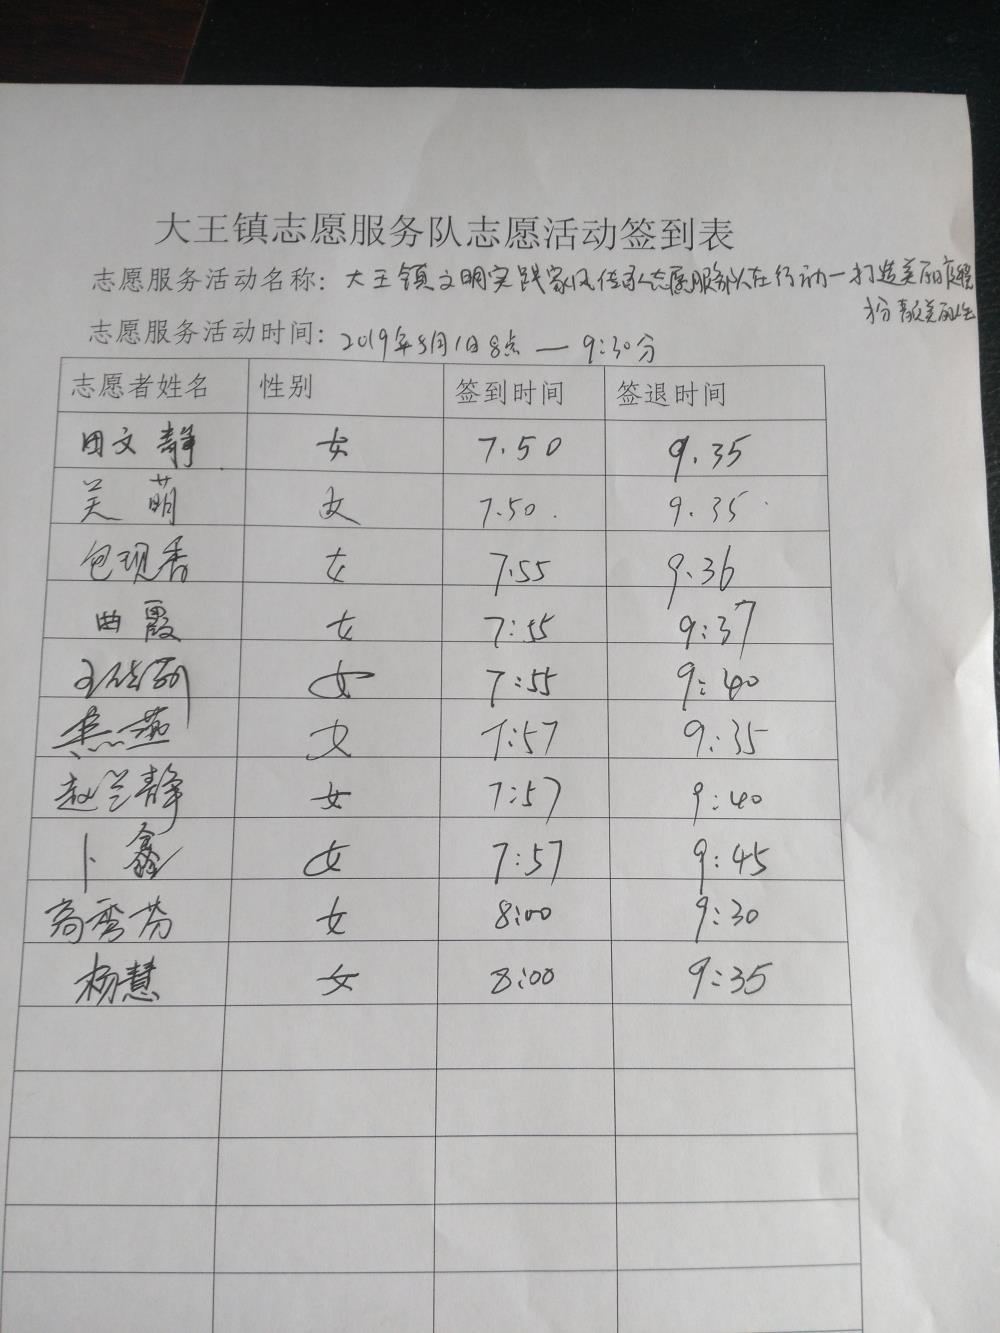 大王镇志愿服务队志愿活动签到表
志愿服务活动名称：大王镇文明实践家风传承志愿服务队在行动—打造美丽庭院
志愿服务活动时间：2019年5月1日8点—9:30分
志愿者姓名 性别 签到时间 签退时间
田文静 女 7.50 9.35
萌 女 7.50 9.35
包现香 女 7:55 9.36
曲霞 女 7:55 9:37
女 7:55 9:40
焦燕 女 7:57 9:35
赵兰静 女 7:57 9:40
卜鑫 女 7:57 9:45
高秀芬 女 8:00 9:30
杨慧 女 8:00 9:35